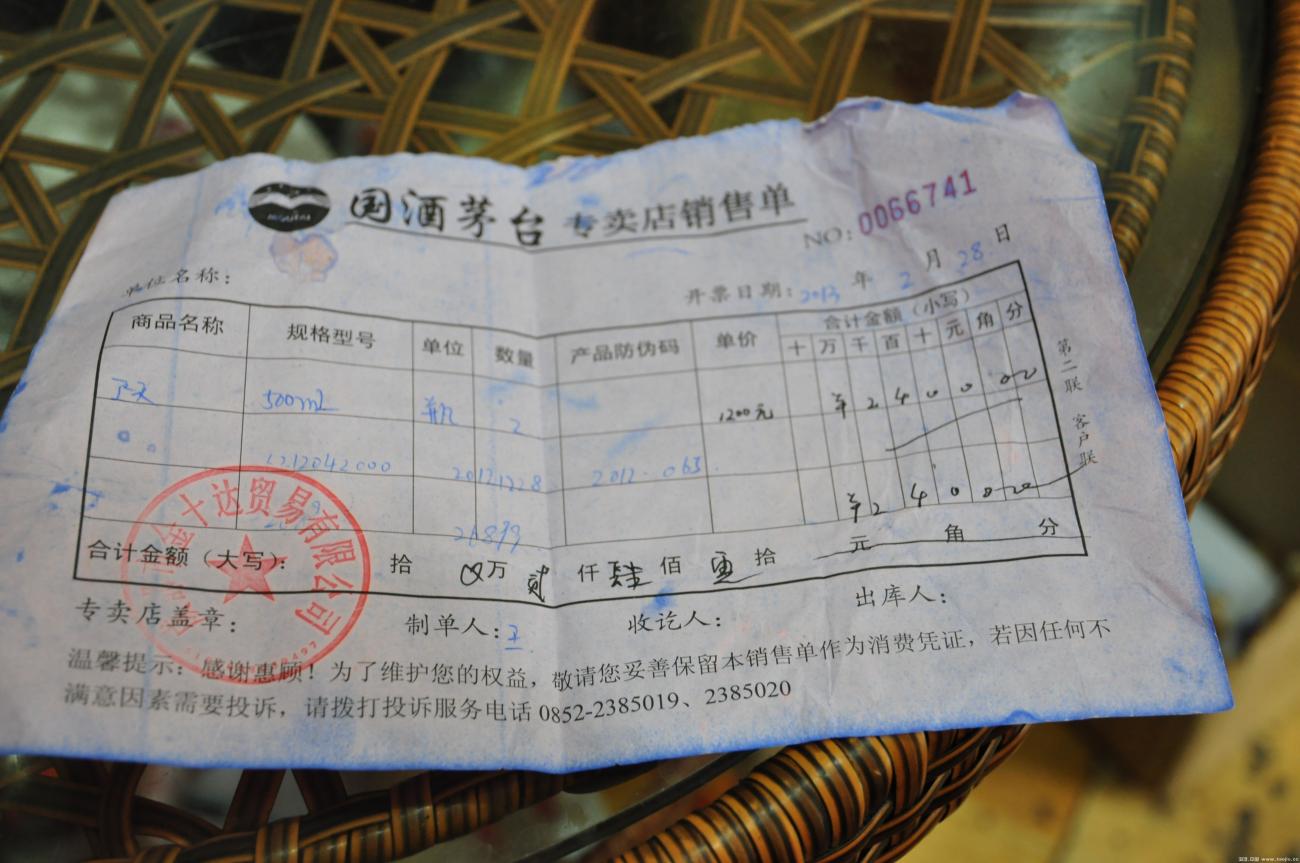 MOUTAI 国酒茅台专卖店销售单
NO: 0066741
单位名称: 开票日期: 2013 年 2 月 28 日
商品名称 规格型号 单位 数量 产品防伪码 单价 合计金额(小写)
十 万 千 百 十 元 角 分
500ml 瓶 2 1200元 ¥ 2 4 0 0 0 0
2012.063
¥ 2 4 0 0 0 0
合计金额(大写): 拾 万 贰 仟 肆 佰 拾 元 角 分
专卖店盖章: 制单人: 王 收讫人: 出库人:
温馨提示: 感谢惠顾! 为了维护您的权益, 敬请您妥善保留本销售单作为消费凭证, 若因任何不
满意因素需要投诉, 请拨打投诉服务电话 0852-2385019、2385020
第二联 客户联
金十达贸易有限公司